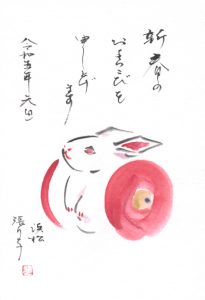 新春の
およろこびを
申し上げ
ます
令和五年 元旦
浜松
張り子